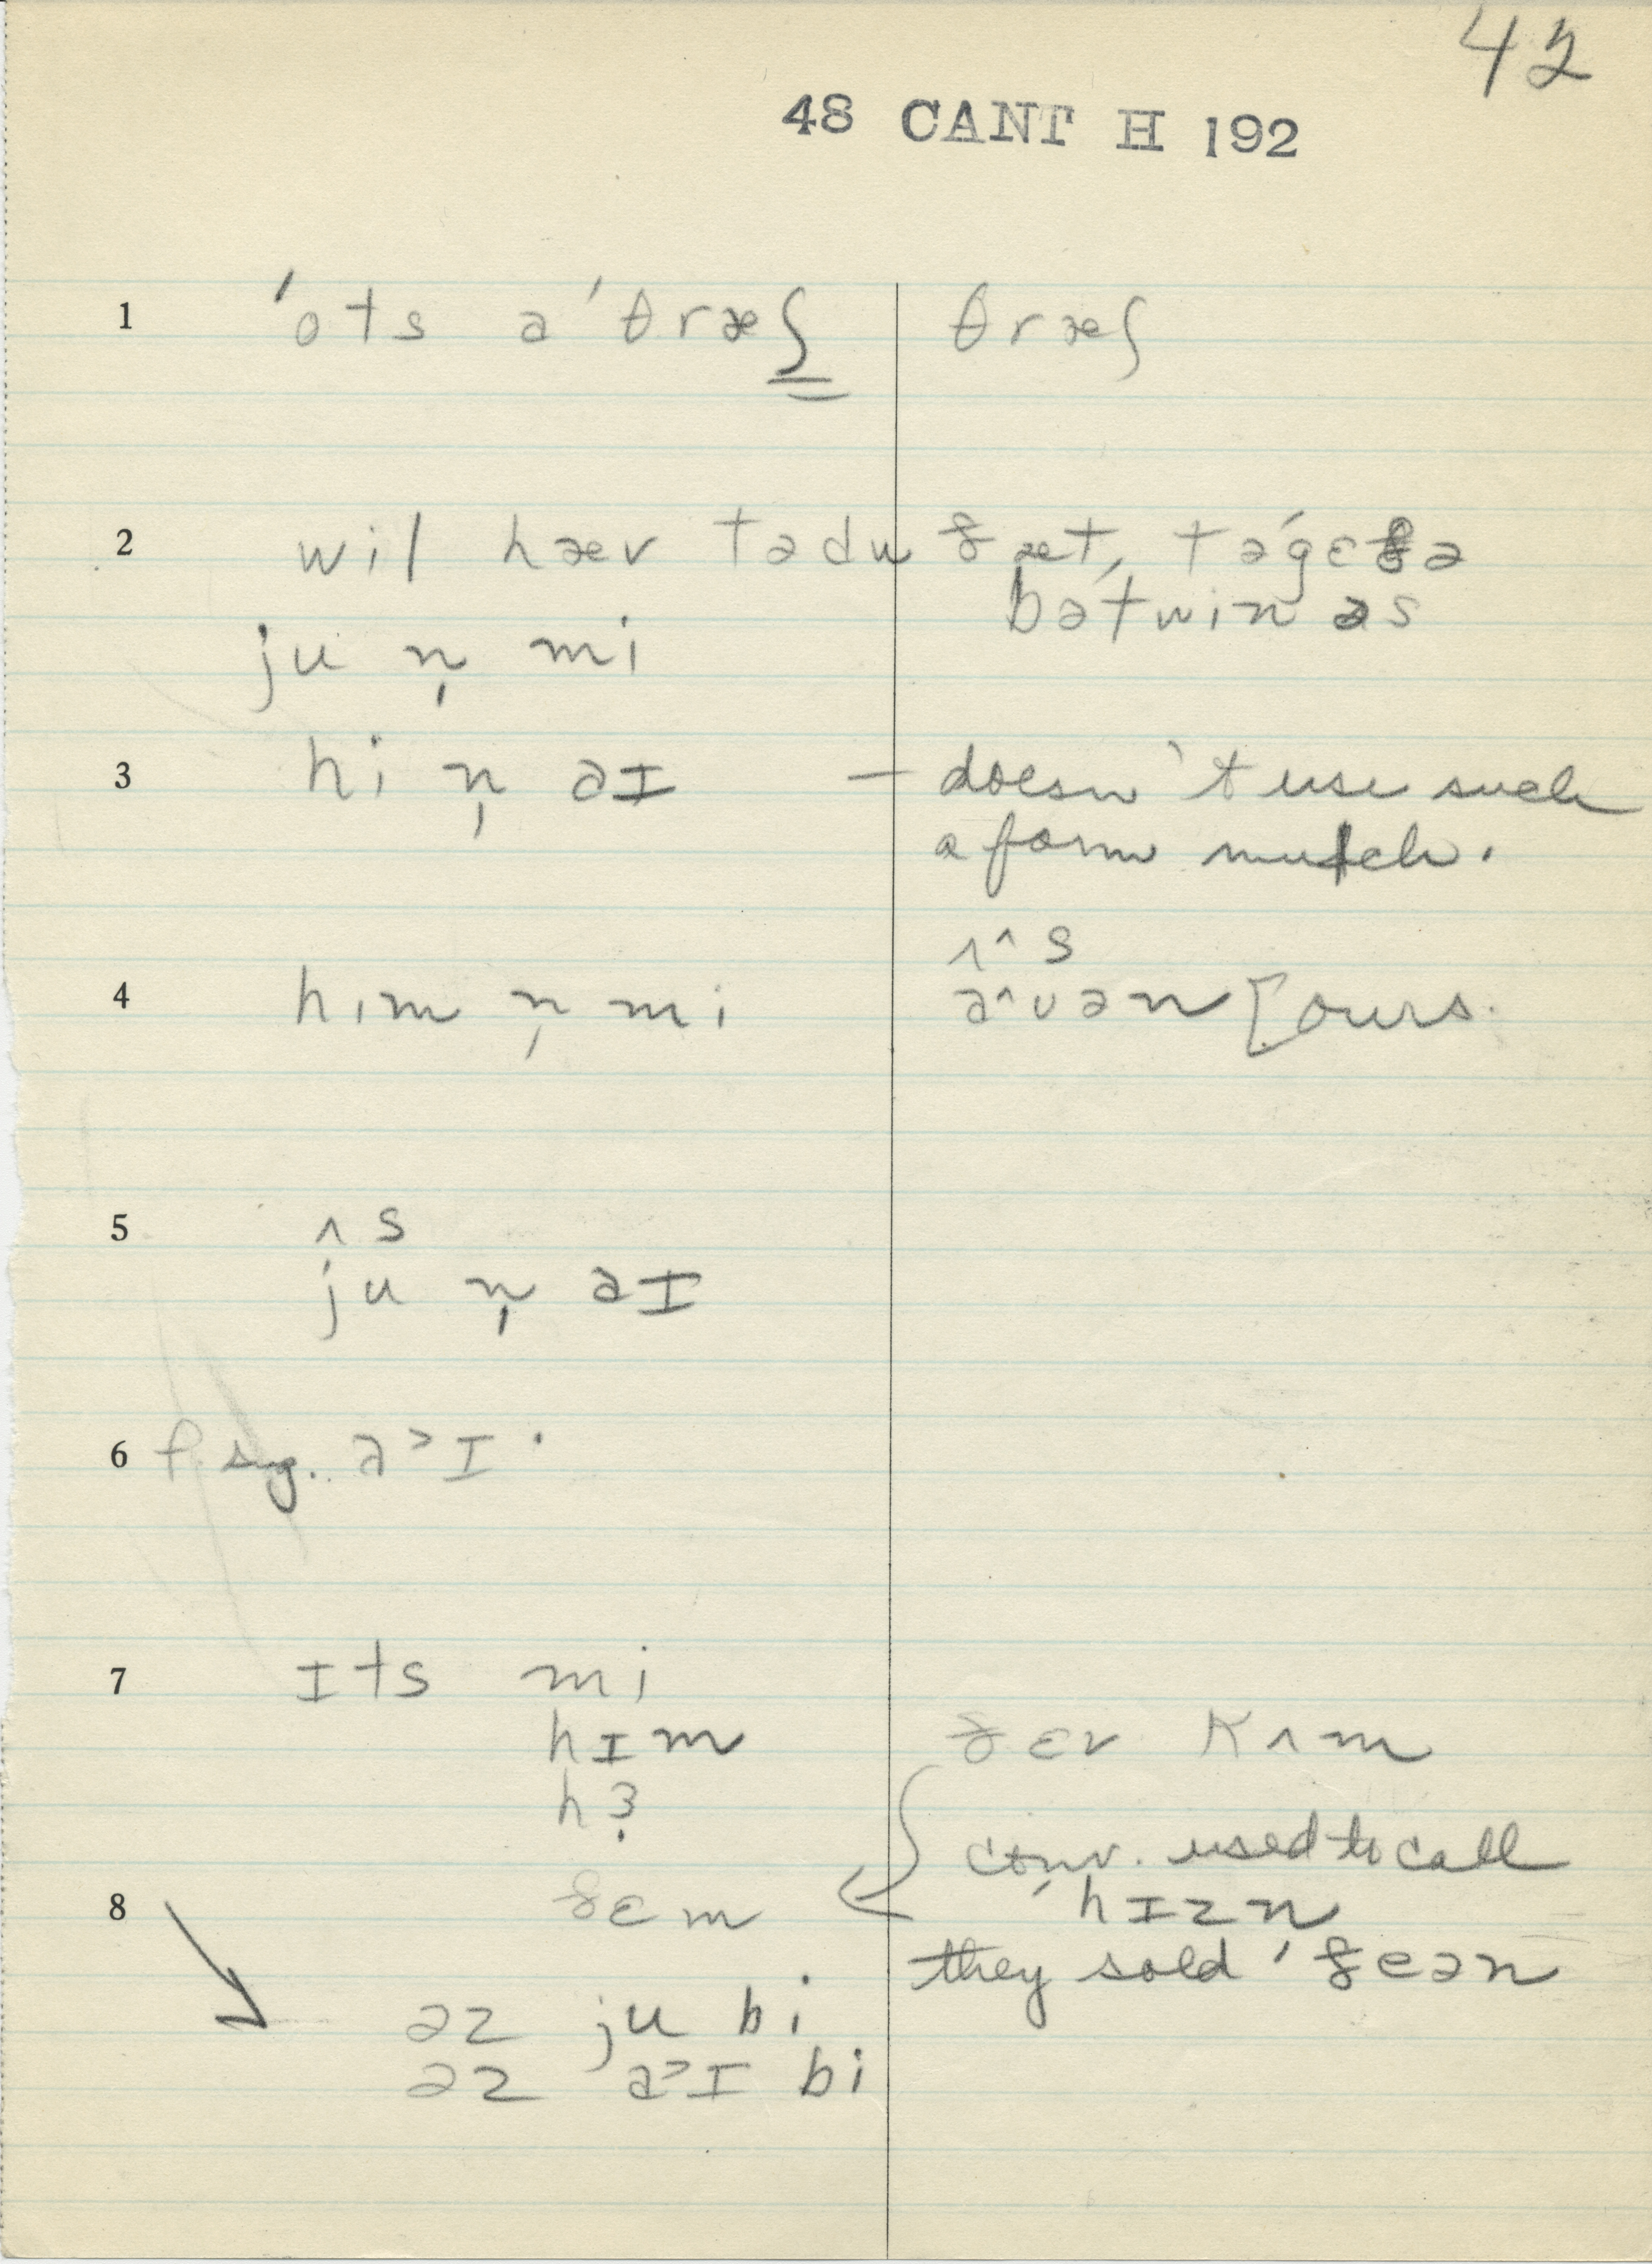 42
48 CANT H 192
1 ˈots əˈθræʃ θræʃ
2 wil hæv tədu ðæt, təgɛðə
bətwin əs
ju n̩ mi
3 hi n̩ əɪ – doesn't use such
a form much.
ʌ^ s
4 him n̩ mi ə^ʊən [ours.
5 ʌ s
ju n̩ əɪ
6 f. sg. ə˃ɪ·
7 ɪts mi
hɪm ðɛr kʌm
hɜ̣
conv. used to call
8 ðɛm hɪzn̩
they sold ˈðeən
əz ju bi
əz ə˃ɪ bi